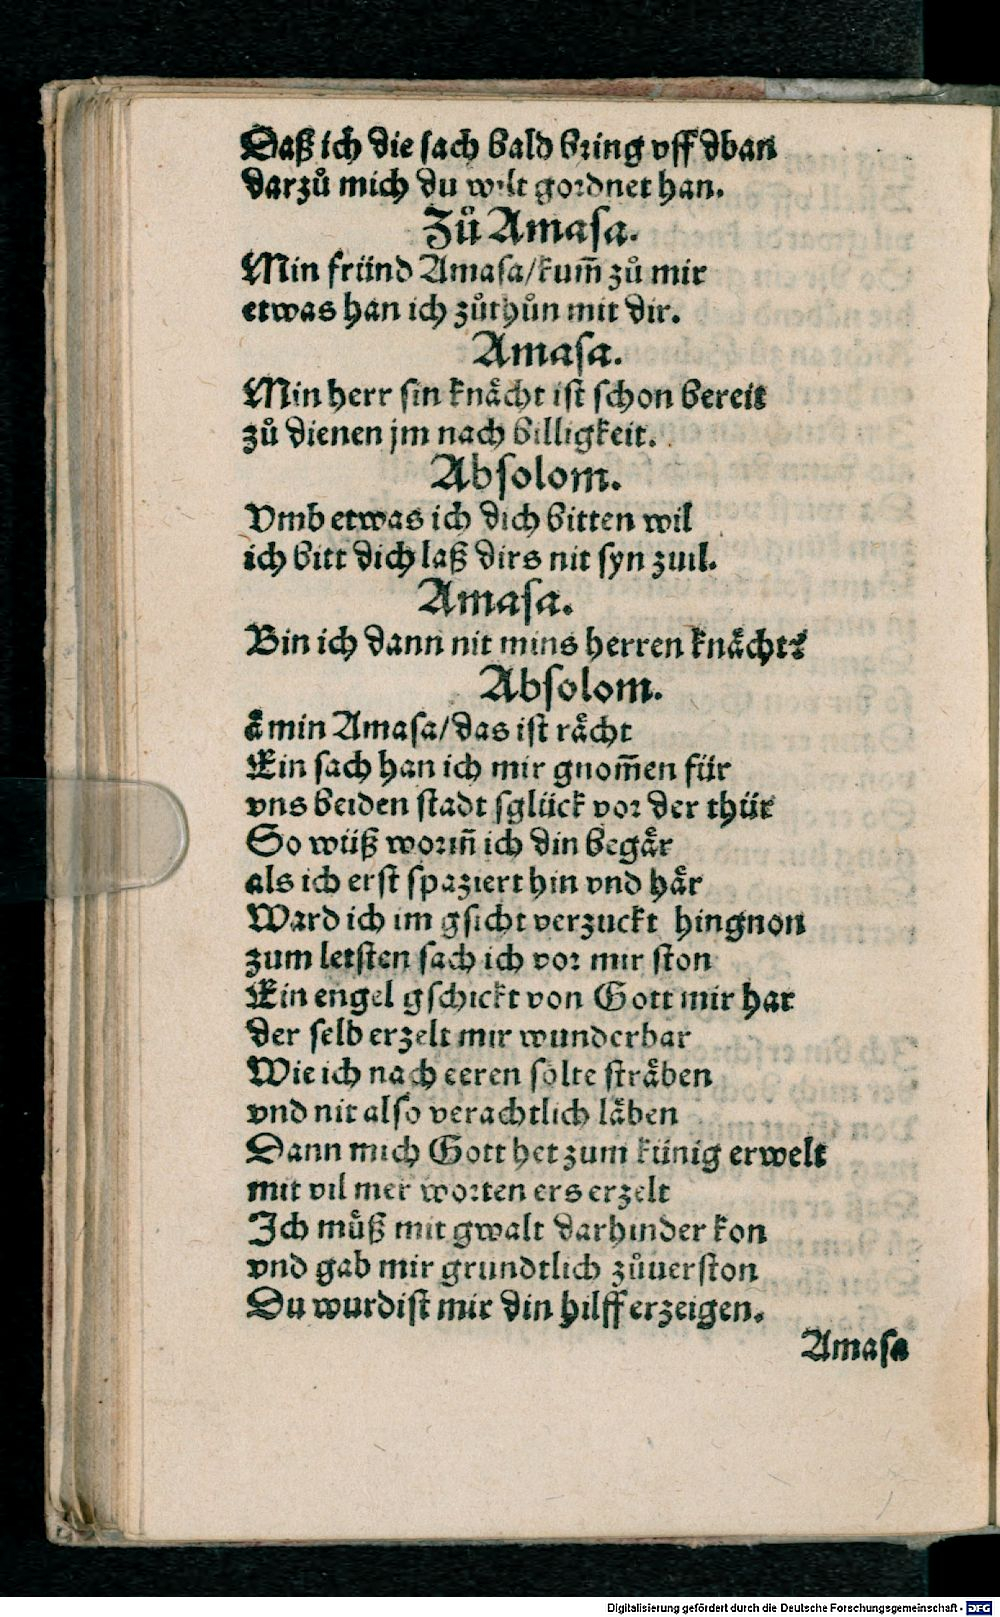 Daß ich die sach bald bring vff dban
darzuͦ mich du wilt gordnet han.
Zuͦ Amasa.
Min fründ Amasa/kum̃ zuͦ mir
etwas han ich zuͦthuͦn mit dir.
Amasa.
Min herr sin knaͤcht ist schon bereit
zuͦ dienen jm nach billigkeit.
Absolom.
Vmb etwas ich dich bitten wil
ich bitt dich laß dirs nit syn zuil.
Amasa.
Bin ich dann nit mins herren knaͤcht?
Absolom.
aͤ min Amasa/das ist raͤcht
Ein sach han ich mir gnom̃en für
vns beiden stadt sglück vor der thür
So wüß worin̄ ich din begaͤr
als ich erst spaziert hin vnd haͤr
Ward ich im gsicht verzuckt hingnon
zum letsten sach ich vor mir ston
Ein engel gschickt von Gott mir har
der selb erzelt mir wunderbar
Wie ich nach eeren solte straͤben
vnd nit also verachtlich laͤben
Dann mich Gott het zum künig erwelt
mit vil mer worten ers erzelt
Ich muͤß mit gwalt darhinder kon
vnd gab mir grundtlich zuͦuerston
Du wurdist mir din hilff erzeigen.
Amasa
Digitalisierung gefördert durch die Deutsche Forschungsgemeinschaft - DFG